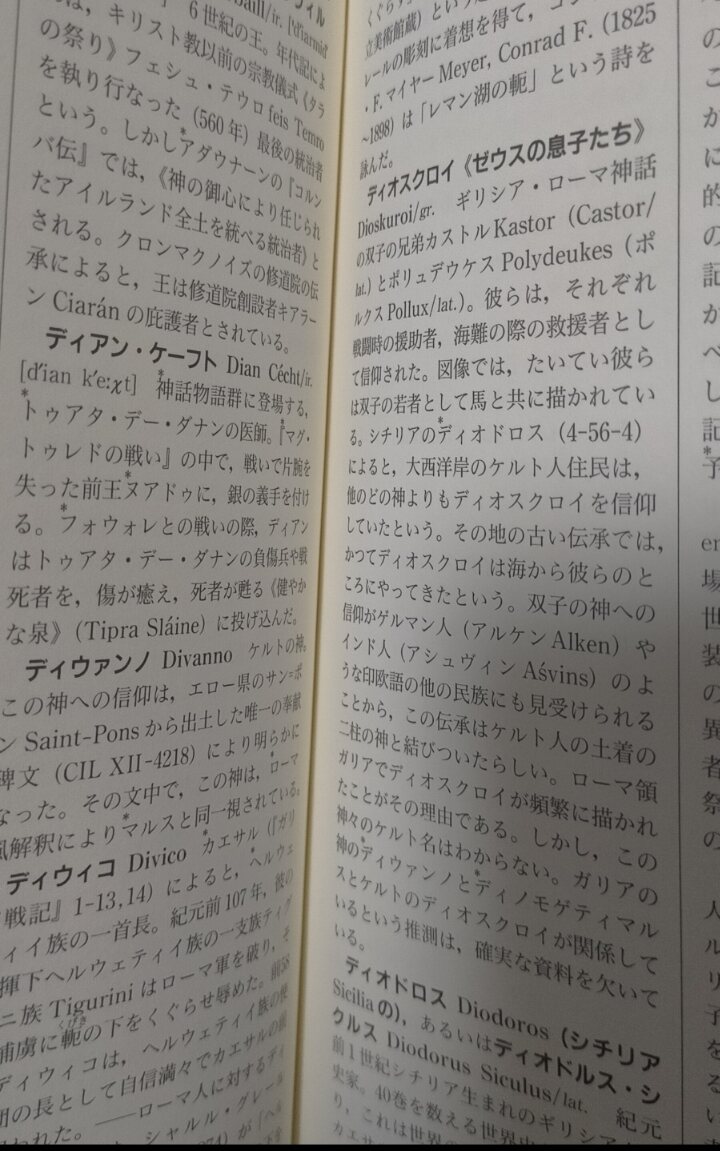 6世紀の王。年代記によ
は，キリスト教以前の宗教儀式《タラ
の祭り》フェシュ・テウロ feis Temro
を執り行なった（560年）最後の統治者
という。しかし*アダウナーンの『コルン
バ伝』では，《神の御心により任じられ
たアイルランド全土を統べる統治者》と
される。クロンマクノイズの修道院の伝
承によると，王は修道院創設者キアラー
ン Ciarán の庇護者とされている。
ディアン・ケーフト Dian Cécht/ir.
[d'ian k'e:χt] *神話物語群に登場する，
*トゥアタ・デー・ダナンの医師。『*マグ・
トゥレドの戦い』の中で，戦いで片腕を
失った前王*ヌアドゥに，銀の義手を付け
る。*フォウォレとの戦いの際，ディアン
はトゥアタ・デー・ダナンの負傷兵や戦
死者を，傷が癒え，死者が甦る《健やか
な泉》（Tipra Sláine）に投げ込んだ。
ディウァンノ Divanno ケルトの神。
この神への信仰は，エロー県のサン=ポ
ン Saint-Pons から出土した唯一の奉献
碑文（CIL XII-4218）により明らかに
なった。その文中で，この神は，*ローマ
風解釈により*マルスと同一視されている。
ディウィコ Divico *カエサル（『ガリ
ア戦記』1-13,14）によると，*ヘルウェ
ティイ族の一首長。紀元前107年，彼の
揮下ヘルウェティイ族の一支族ティグ
ニ族 Tigurini はローマ軍を破り，そ
捕虜に軛の下をくぐらせ辱めた。前58
ディウィコは，ヘルウェティイ族の使
団の長として自信満々でカエサルの前
われた。――ローマ人に対するディ
シャルル・グレール
立美術館蔵）という
レールの彫刻に着想を得て，コン
・F. マイヤー Meyer, Conrad F.（1825
~1898）は「レマン湖の軛」という詩を
詠んだ。
ディオスクロイ《ゼウスの息子たち》
Dioskuroi/gr. ギリシア・ローマ神話
の双子の兄弟カストル Kastor（Castor/
lat.）とポリュデウケス Polydeukes（ポ
ルクス Pollux/lat.）。彼らは，それぞれ
戦闘時の援助者，海難の際の救援者とし
て信仰された。図像では，たいてい彼ら
は双子の若者として馬と共に描かれてい
る。シチリアの*ディオドロス（4-56-4）
によると，大西洋岸のケルト人住民は，
他のどの神よりもディオスクロイを信仰
していたという。その地の古い伝承では，
かつてディオスクロイは海から彼らのと
ころにやってきたという。双子の神への
信仰がゲルマン人（アルケン Alken）や
インド人（アシュヴィン Aśvins）のよ
うな印欧語の他の民族にも見受けられる
ことから，この伝承はケルト人の土着の
二柱の神と結びついたらしい。ローマ領
ガリアでディオスクロイが頻繁に描かれ
たことがその理由である。しかし，この
神々のケルト名はわからない。ガリアの
神のディウァンノと*ディノモゲティマル
スとケルトのディオスクロイが関係して
いるという推測は，確実な資料を欠いて
いる。
ディオドロス Diodoros（シチリア
Sicilia の），あるいはディオドルス・シ
クルス Diodorus Siculus/lat. 紀元
前1世紀シチリア生まれのギリシア
史家。40巻を数える世界史
り，これは世界の